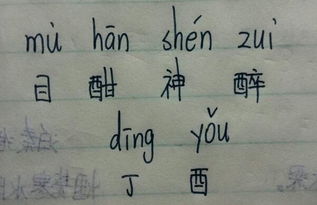 mù hān shén zuì
目 酣 神 醉
dīng yǒu
丁 酉